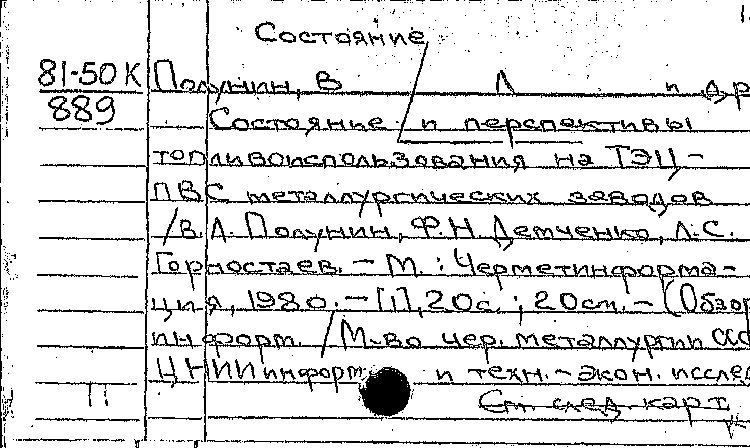 Состояние
81-50К Полунин, В Л и др
889 Состояние и перспективы
топливоиспользования на ТЭЦ-
ПВС металлургических заводов
/В.Л. Полунин, Ф.Н. Демченко, Л.С.
Горностаев. - М.: Черметинформа-
ция, 1980. - [1], 20с.; 20см. - (Обзор
информ. /М-во чер. металлургии ССС
ЦНИИ информ. и техн.-экон. исслед
См. след. карт